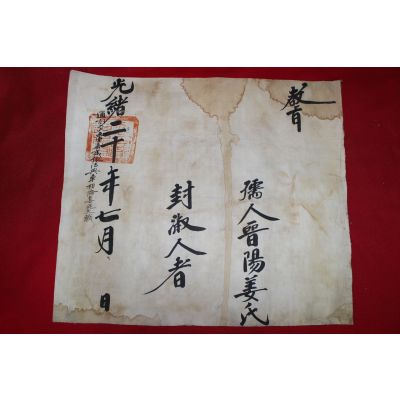 教旨
孺人晉陽姜氏
封淑人者
光緒二十年七月 日